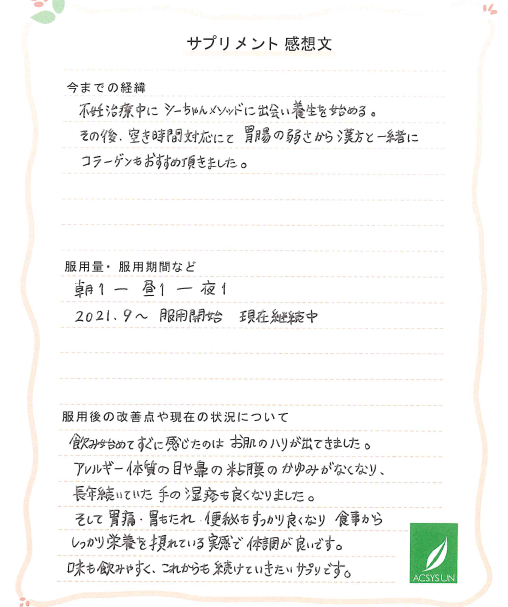 サプリメント 感想文
今までの経緯
不妊治療中に シーちゃんメソッドに出会い養生を始める。
その後、空き時間対応にて 胃腸の弱さから漢方と一緒に
コラーゲンもおすすめ頂きました。
服用量・服用期間など
朝1 ー 昼1 ー 夜1
2021.9〜 服用開始 現在継続中
服用後の改善点や現在の状況について
飲み始めてすぐに感じたのは お肌のハリが出てきました。
アレルギー体質の目や鼻の粘膜のかゆみがなくなり、
長年続いていた 手の湿疹も良くなりました。
そして 胃痛・胃もたれ 便秘もすっかり良くなり 食事から
しっかり栄養を摂れている実感で 体調が良いです。
味も飲みやすく、これからも続けていきたいサプリです。
ACSYSUN